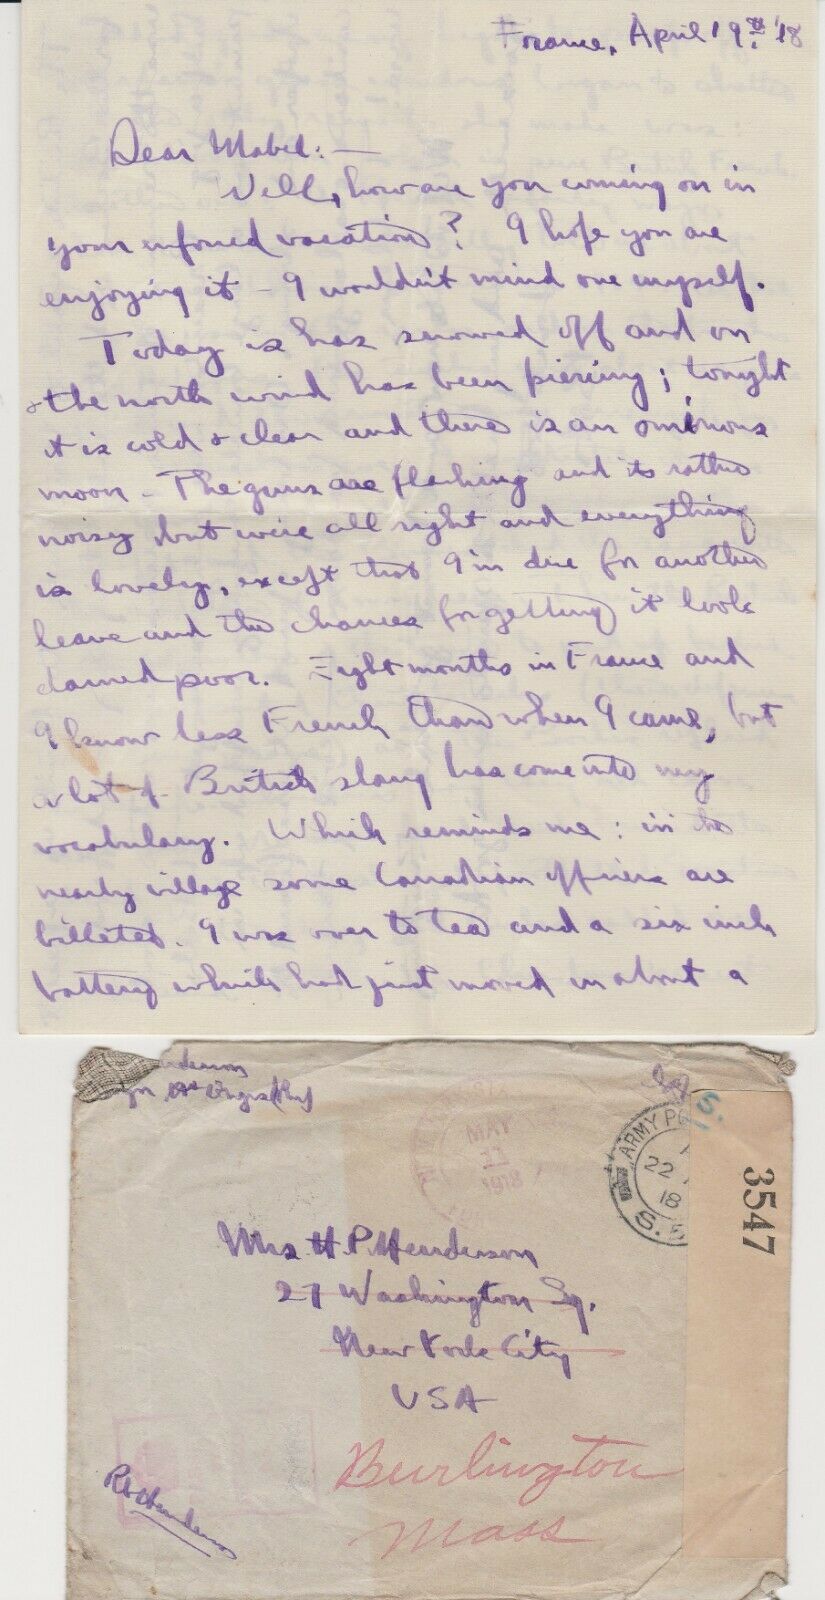 France, April 19th, '18
Dear Mabel: —
Well, how are you coming on in
your enforced vacation? I hope you are
enjoying it – I wouldn't mind one myself.
Today is has snowed off and on
& the north wind has been piercing; tonight
it is cold & clear and there is an ominous
moon – The guns are flashing and its rather
noisy but we're all right and everything
is lovely, except that I'm due for another
leave and the chances for getting it look
damed poor. Eight months in France and
I know less French than when I came, but
a lot of British slang has come into my
vocabulary. Which reminds me: in the
nearby village some Canadian officers are
billeted. I was over to tea and a six inch
battery which had just moved in about a
MAY
11
1918
ARMY PO
22
18
S.
S.
3547
Mrs H. P. Henderson
27 Washington Sq.
New York City
USA
Burlington
Mass
RHenderson